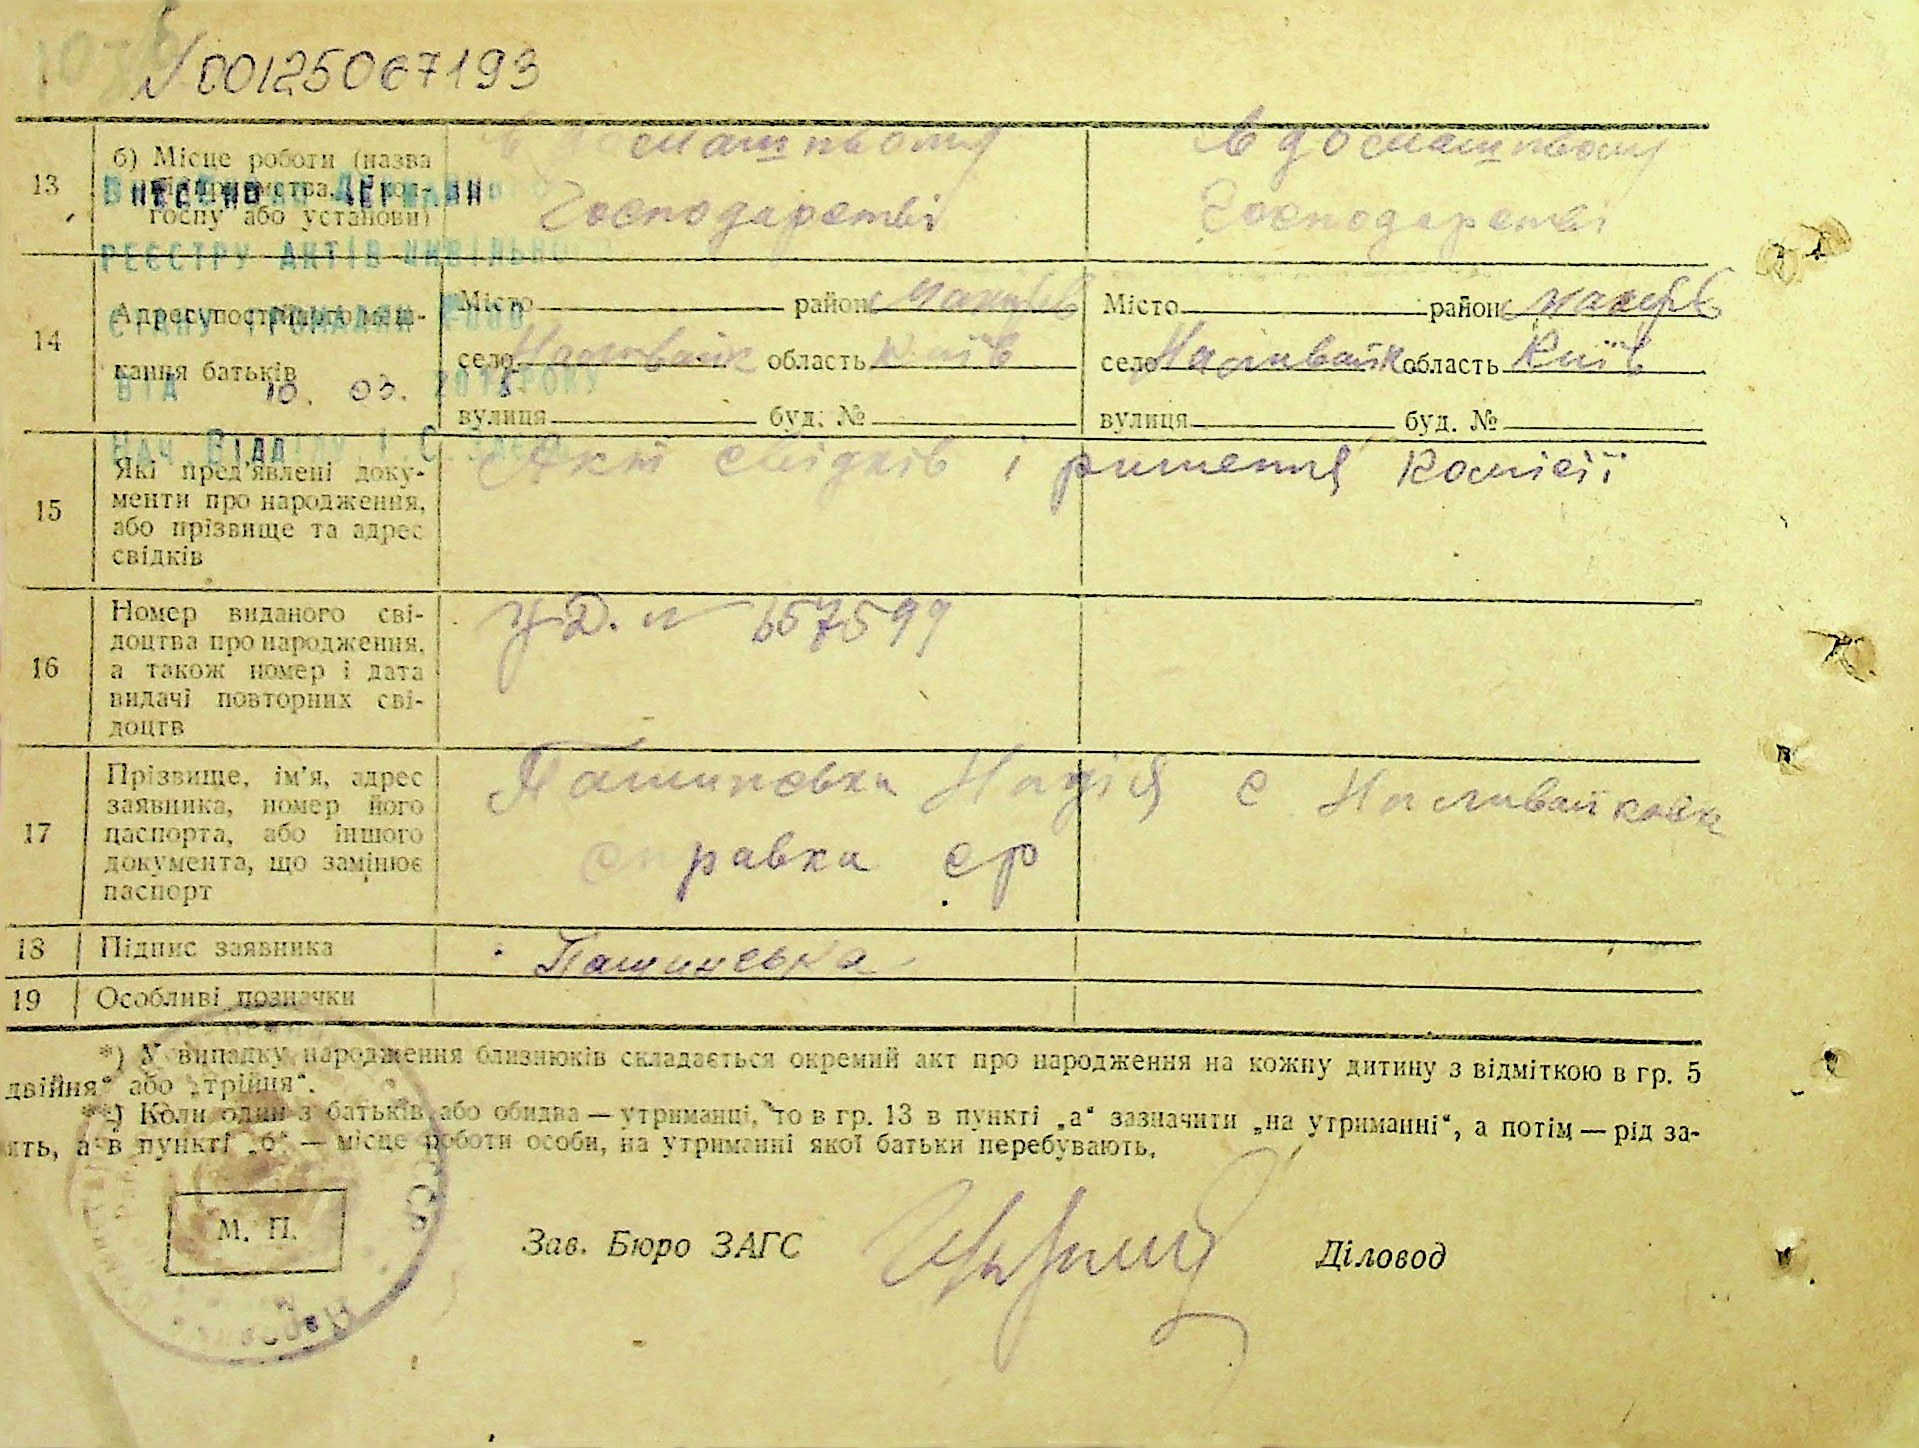 № 00125067193
13
б) Місце роботи (назва
підприємства, колгоспу або установи)
в домашньому
господарстві
в домашньому
господарстві
ВНЕСЕНО ДО ДЕРЖАВНОГО
РЕЄСТРУ АКТІВ ЦИВІЛЬНОГО
СТАНУ ГРОМАДЯН
ВІД 10. 03. РОКУ
НАЧ. ВІДДІЛУ
14
Адреса постійного меш-
кання батьків
Місто район Макарів
село Наливайк область Київ
вулиця буд. №
Місто район Макарів
село Наливайк область Київ
вулиця буд. №
15
Які пред'явлені доку-
менти про народження,
або прізвище та адрес
свідків
Акт свідків і ришення комісії
16
Номер виданого сві-
доцтва про народження,
а також номер і дата
видачі повторних сві-
доцтв
№ 657599
17
Прізвище, ім'я, адрес
заявника, номер його
паспорта, або іншого
документа, що замінює
паспорт
Пашинська Надія с Наливайковк
справка ср
18
Підпис заявника
Пашинська
19
Особливі позначки
*) У випадку народження близнюків складається окремий акт про народження на кожну дитину з відміткою в гр. 5
двійня“ або „трійня“.
**) Коли один з батьків або обидва — утриманці, то в гр. 13 в пункті „а“ зазначити „на утриманні“, а потім — рід за-
ять, а в пункті „б“ — місце роботи особи, на утриманні якої батьки перебувають.
М. П.
Зав. Бюро ЗАГС
Діловод